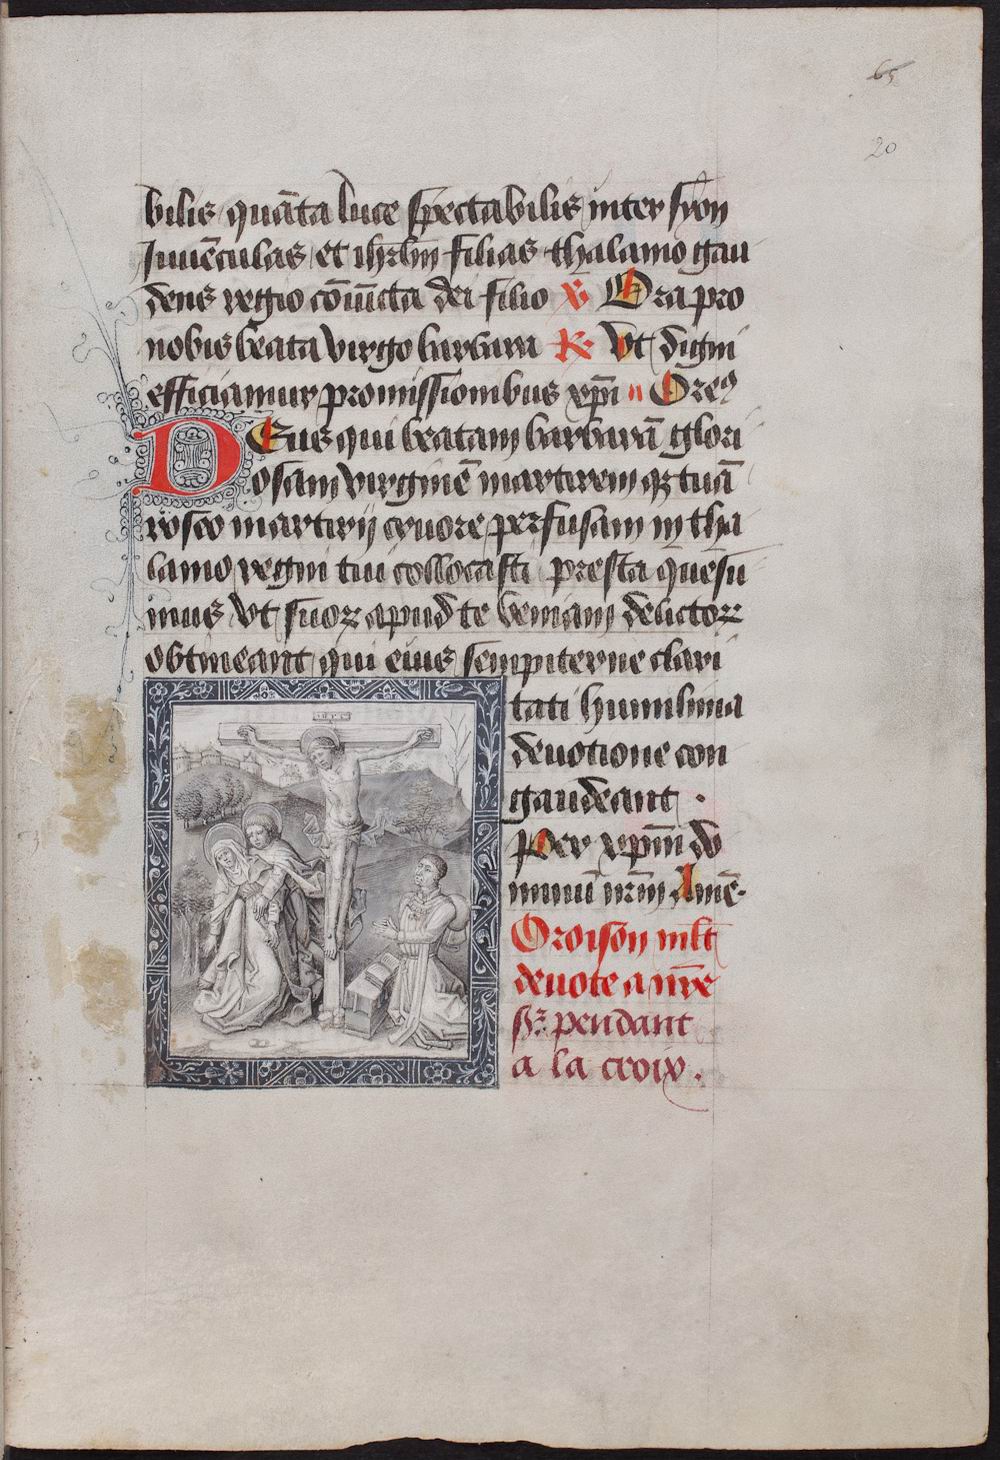 65
20
bilis quāta luce spectabilis inter syon
Iuuēculas et ihrlm filias thalamo gau
dens regio cōiuncta dei filio ℣ Ora pro
nobis beata virgo barbara ℟ Vt digni
efficiamur promissionibus xp̄i Oreꝰ
DEus qui beatam barbarā glori
osam virginē martirem qꝫ tuā
roseo martirij cruore perfusam in tha
lamo regni tui collocasti presta quesu
mus vt suoꝝ apud te veniam delictoꝝ
obtineant qui eius sempiterne clari
tati humilima
deuotione con
gaudeant .
Per xp̄m do
minū nr̄m Amē.
Oroison mlt
deuote a nr̄e
sʳ pendant
a la croix .